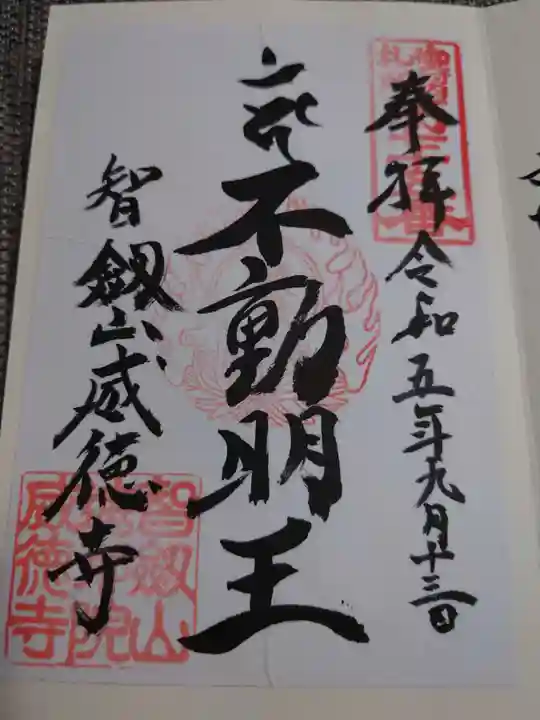 奉拝 令和五年九月十三日
不動明王
智釼山威徳寺
智釼山
院
威徳寺